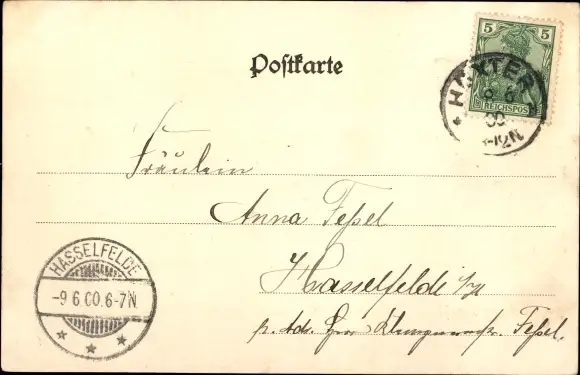 5 5
REICHSPOST
HÖXTER
8 6
00
-12N
Postkarte
Fräulein
Anna Feßel
Hasselfelde i/H
p. Ads. Feßel.
HASSELFELDE
-9 6 00.6-7N